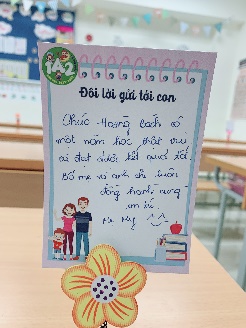 Đôi lời gửi tới con
Chúc Hoàng Bách có
một năm học thật vui
và đạt được kết quả tốt.
Bố mẹ và anh chị luôn
đồng hành cùng
em